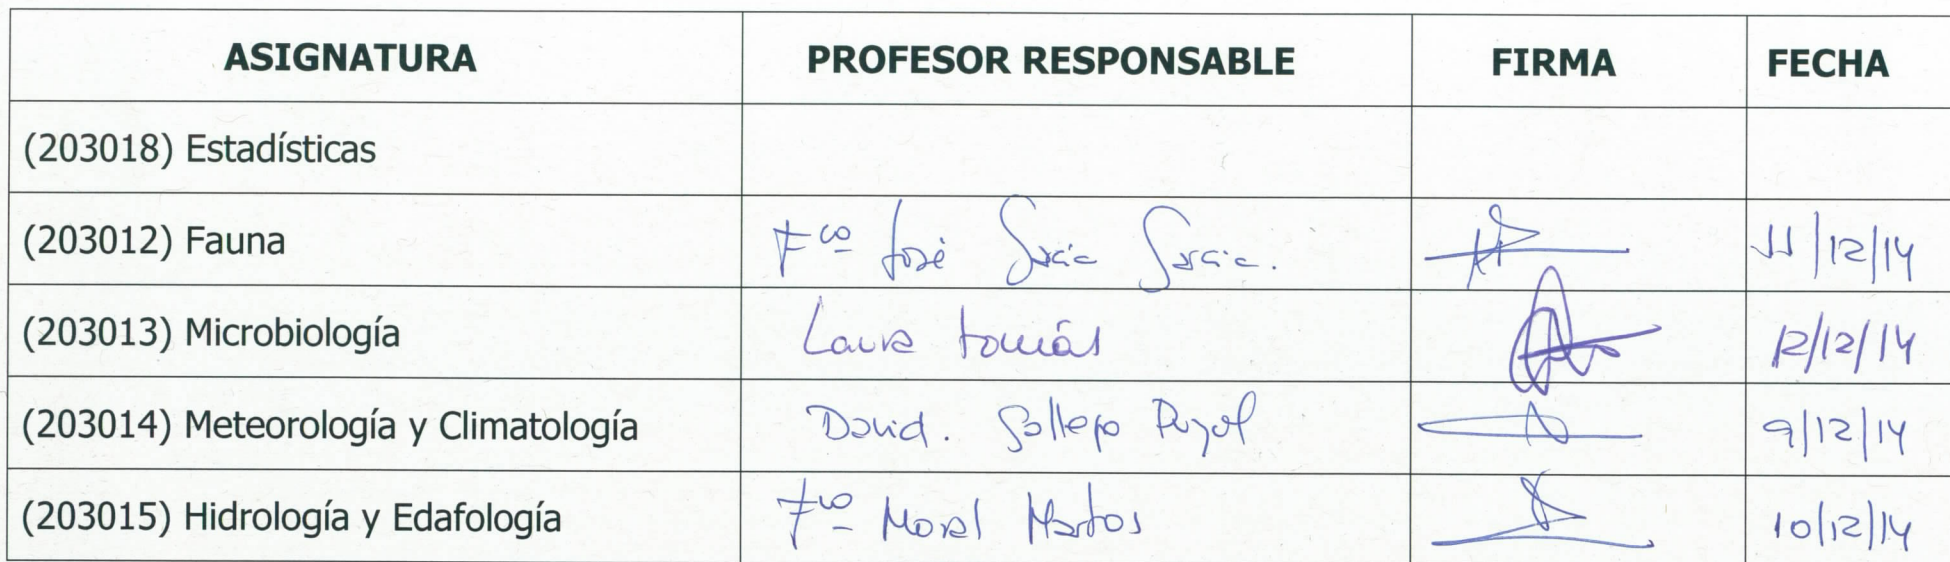 ASIGNATURA PROFESOR RESPONSABLE FIRMA FECHA
(203018) Estadísticas
(203012) Fauna Fco José García García. 11/12/14
(203013) Microbiología Laura Tomás 12/12/14
(203014) Meteorología y Climatología David. Gallego Puyol 9/12/14
(203015) Hidrología y Edafología Fco Moral Martos 10/12/14